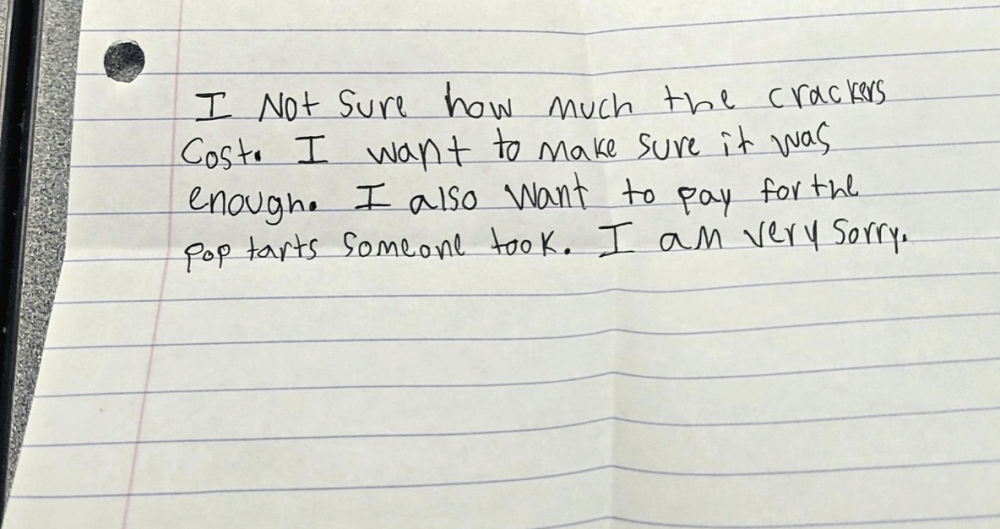 I Not Sure how much the crackers
Cost. I want to make sure it was
enough. I also want to pay for the
pop tarts someone took. I am very sorry.